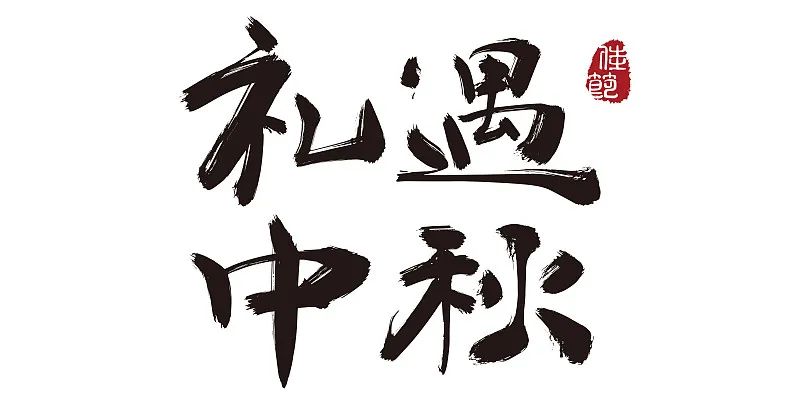 礼遇
中秋
佳節